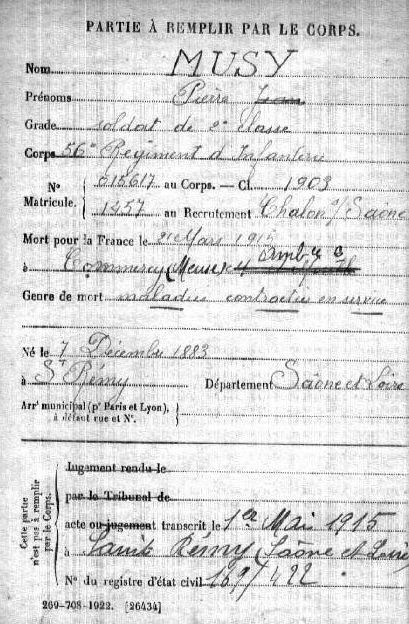 PARTIE À REMPLIR PAR LE CORPS.
Nom MUSY
Prénoms Pierre Jean
Grade soldat de 2e classe
Corps 56e Régiment d'Infanterie
N° 015617 au Corps. — Cl. 1903
Matricule. 1257 au Recrutement Chalon s/ Saône
Mort pour la France le 2 Mars 1915
à Commercy (Meuse) Ambce
Genre de mort maladies contractées en service
Né le 7 Décembre 1883
à St Rémy Département Saône et Loire
Arrt municipal (pr Paris et Lyon),
à défaut rue et N°.
Cette partie
n'est pas à remplir
par le Corps.
Jugement rendu le
par le Tribunal de
acte ou jugement transcrit le 1er Mai 1915
à Saint Rémy (Saône et Loire
N° du registre d'état civil 169/422
269-708-1922. [26434]